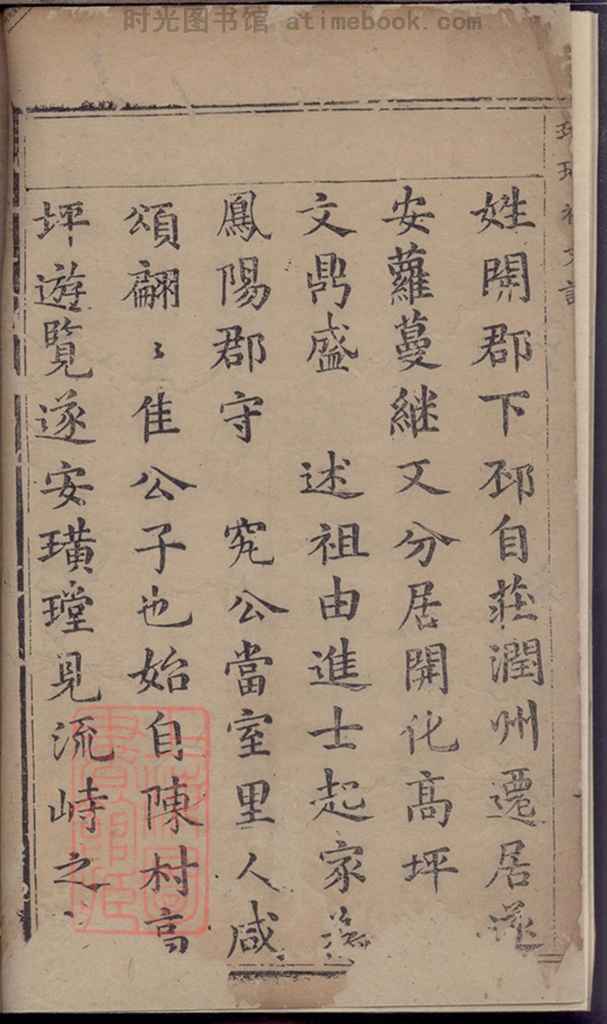 时光图书馆 atimebook.com
姓開郡下邳自莊潤州遷居遂
安蘿蔓継又分居開化高坪
文鼎盛 述祖由進士起家
鳳陽郡守 究公當室里人咸
頌翩〻佳公子也始自陳村高
坪遊覽遂安璜瑝見流峙之